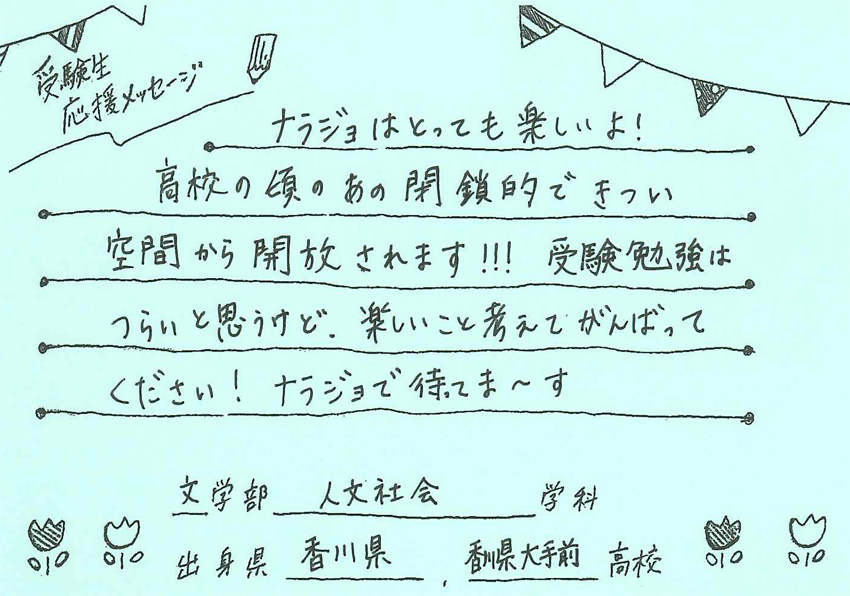 受験生
応援メッセージ
ナラジョはとっても楽しいよ!
高校の頃のあの閉鎖的できつい
空間から開放されます!!! 受験勉強は
つらいと思うけど、楽しいこと考えてがんばって
ください! ナラジョで待ってま〜す
文学部 人文社会 学科
出身県 香川県 , 香川県大手前 高校